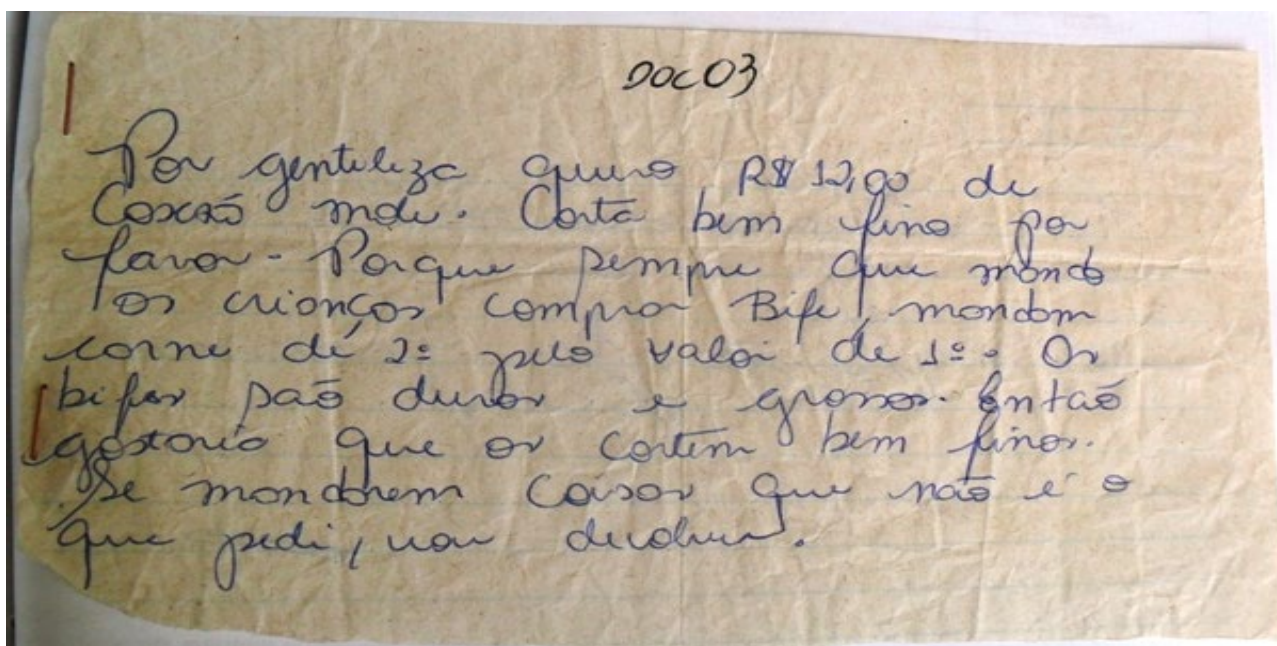 DOC 03
Por gentileza quero R$ 12,00 de
Coxão mole. Corta bem fino por
favor - Porque sempre que mando
as crianças comprar Bife, mandam
carne de 2ª pelo valor de 1ª. Os
bifes são duros e grossos. Então
gostaria que os cortem bem finos.
Se mandarem coisas que não é o
que pedi, vou devolver.